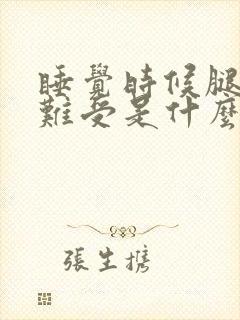 睡覺時候腿
難受是什麼
張生携